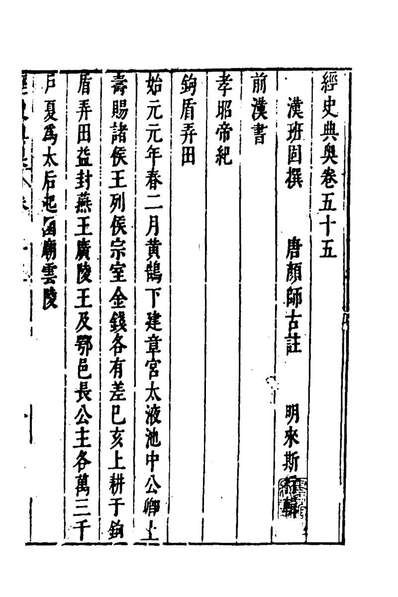 經史典奥卷五十五
漢班固撰 唐顏師古註 明來斯行輯
前漢書
孝昭帝紀
鉤盾弄田
始元元年春二月黄鵠下建章宫太液池中公卿上
壽賜諸侯王列侯宗室金錢各有差已亥上耕于鉤
盾弄田益封燕王廣陵王及鄂邑長公主各萬三千
户夏為太后起園廟雲陵